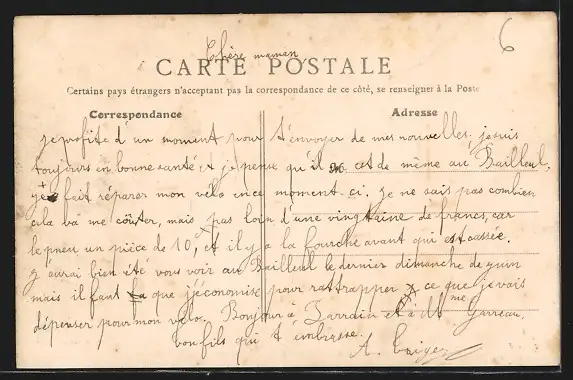 6
Chère maman
CARTE POSTALE
Certains pays étrangers n'acceptant pas la correspondance de ce côté, se renseigner à la Poste
Correspondance
Adresse
je profite d'un moment pour t'envoyer de mes nouvelles. je suis
toujours en bonne santé, et je pense qu'il en est de même au Bailleul,
je fait réparer mon vélo en ce moment ci. je ne sais pas combien
cela va me coûter, mais pas loin d'une vingtaine de francs, car
le pneu un pièce de 10, et il y a la fourche avant qui est cassée.
j'aurai bien été vous voir au Bailleul le dernier dimanche de juin
mais il faut que j'économise pour rattrapper ce que j'avais
dépenser pour mon vélo. Bonjour à et à Mme Garreau.
bon fils qui t'embrasse.
A.